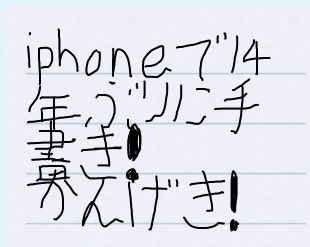 iphoneで14
年ぶりに手
書き!
んげき!